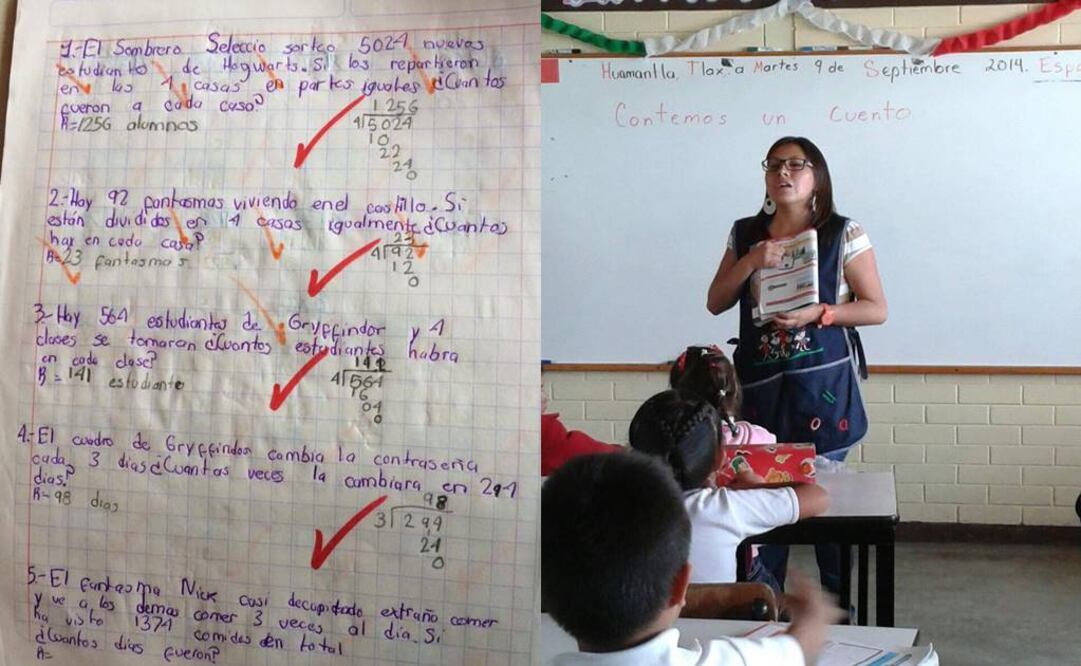 1.-El Sombrero Seleccio sorteo 5024 nuevos
estudiantes de Hogwarts. Si los repartieron
en las 4 casas en partes iguales ¿Cuantos
fueron a cada casa?
R=1256 alumnos
1256
4 5024
10
22
24
0
2.-Hay 92 fantasmas viviendo enel castillo. Si
están divididos en 4 casas igualmente ¿Cuantos
hay en cada casa?
R=23 fantasmas
23
4 92
12
0
3.-Hay 564 estudiantes de Gryffindor y 4
clases se tomaran ¿Cuantos estudiantes habra
en cada clase?
R=141 estudiante
141
4 564
16
04
0
4.-El cuadro de Gryffindor cambia la contraseña
cada 3 dias ¿Cuantas veces la cambiara en 294
dias?
R=98 dias
98
3 294
24
0
5.-El fantasma Nick casi decapitado extraño comer
y ve a los demas comer 3 veces al dia. Si
ha visto 1374 comidas en total
¿Cuantos dias fueron?
R=
Huamantla, Tlax. a Martes 9 de Septiembre 2014.
Contemos un cuento